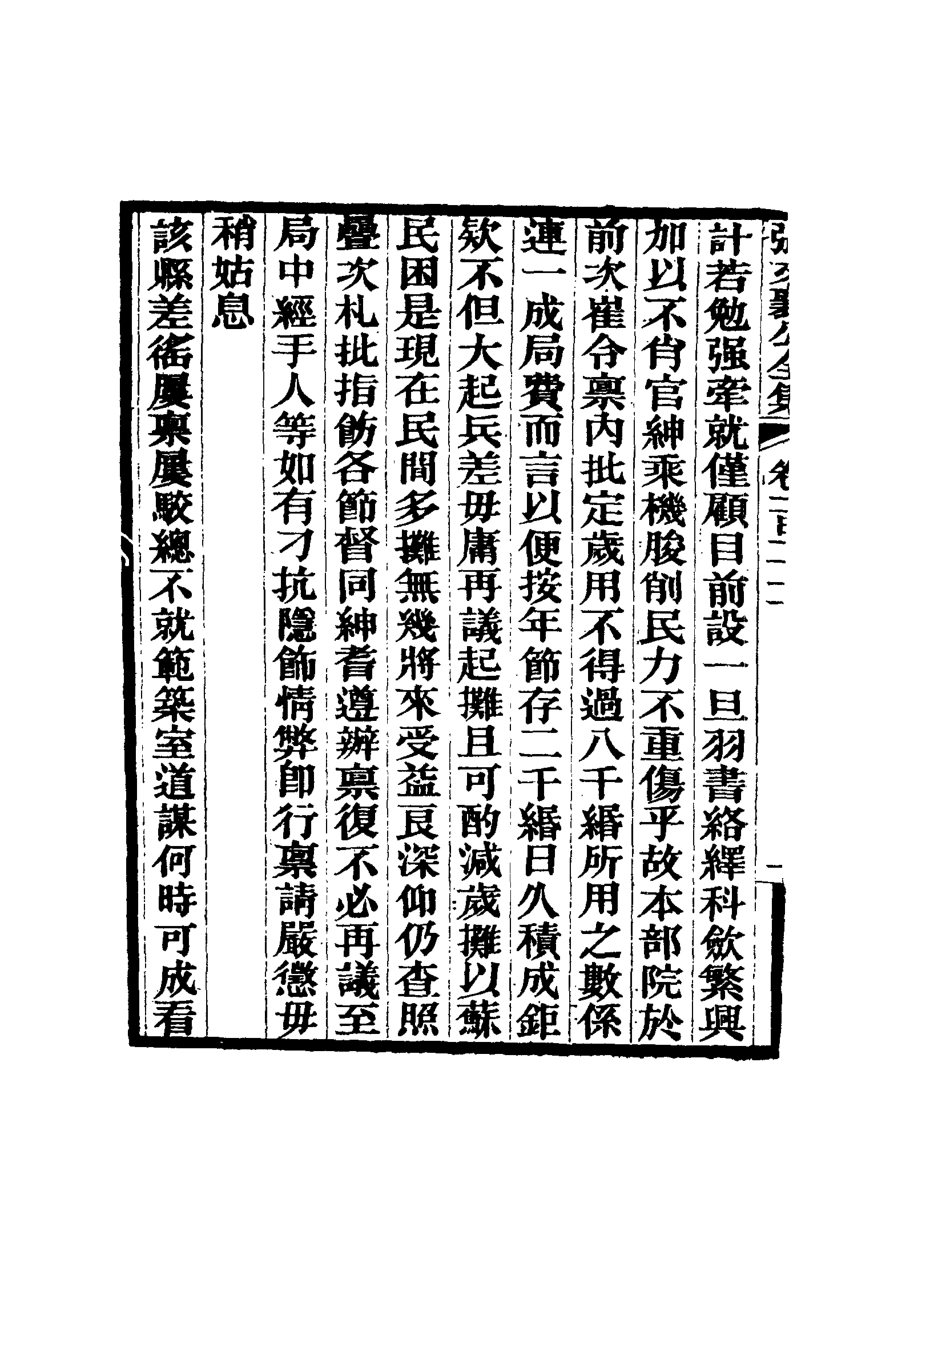 張文襄公全集 卷一百一十一 一
計若勉强牽就僅顧目前設一旦羽書絡繹科歛繁興
加以不肖官紳乘機朘削民力不重傷乎故本部院於
前次崔令禀內批定歲用不得過八千緡所用之數係
連一成局費而言以便按年節存二千緡日久積成鉅
欵不但大起兵差毋庸再議起攤且可酌減歲攤以蘇
民困是現在民間多攤無幾將來受益良深仰仍查照
疊次札批指飭各節督同紳耆遵辦禀復不必再議至
局中經手人等如有刁抗隱飾情弊卽行禀請嚴懲毋
稍姑息
該縣差徭屢禀屢駮總不就範築室道謀何時可成看